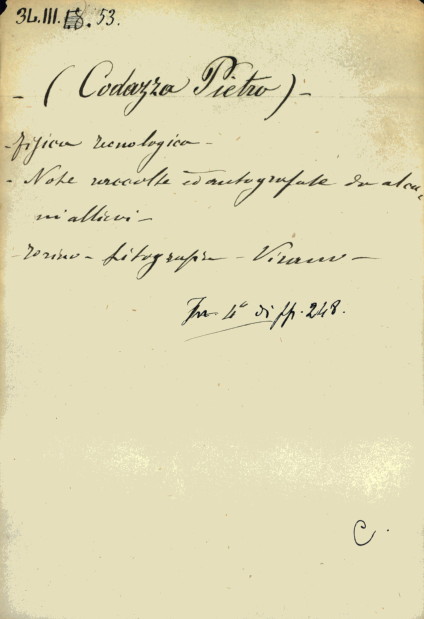 34.III. 53.
- (Codazza Pietro) -
- Fisica tecnologica -
- Note raccolte ed autografate da alcu-
ni allievi -
- Torino - Litografia - Virano -
In 4° di pp. 248.
C.